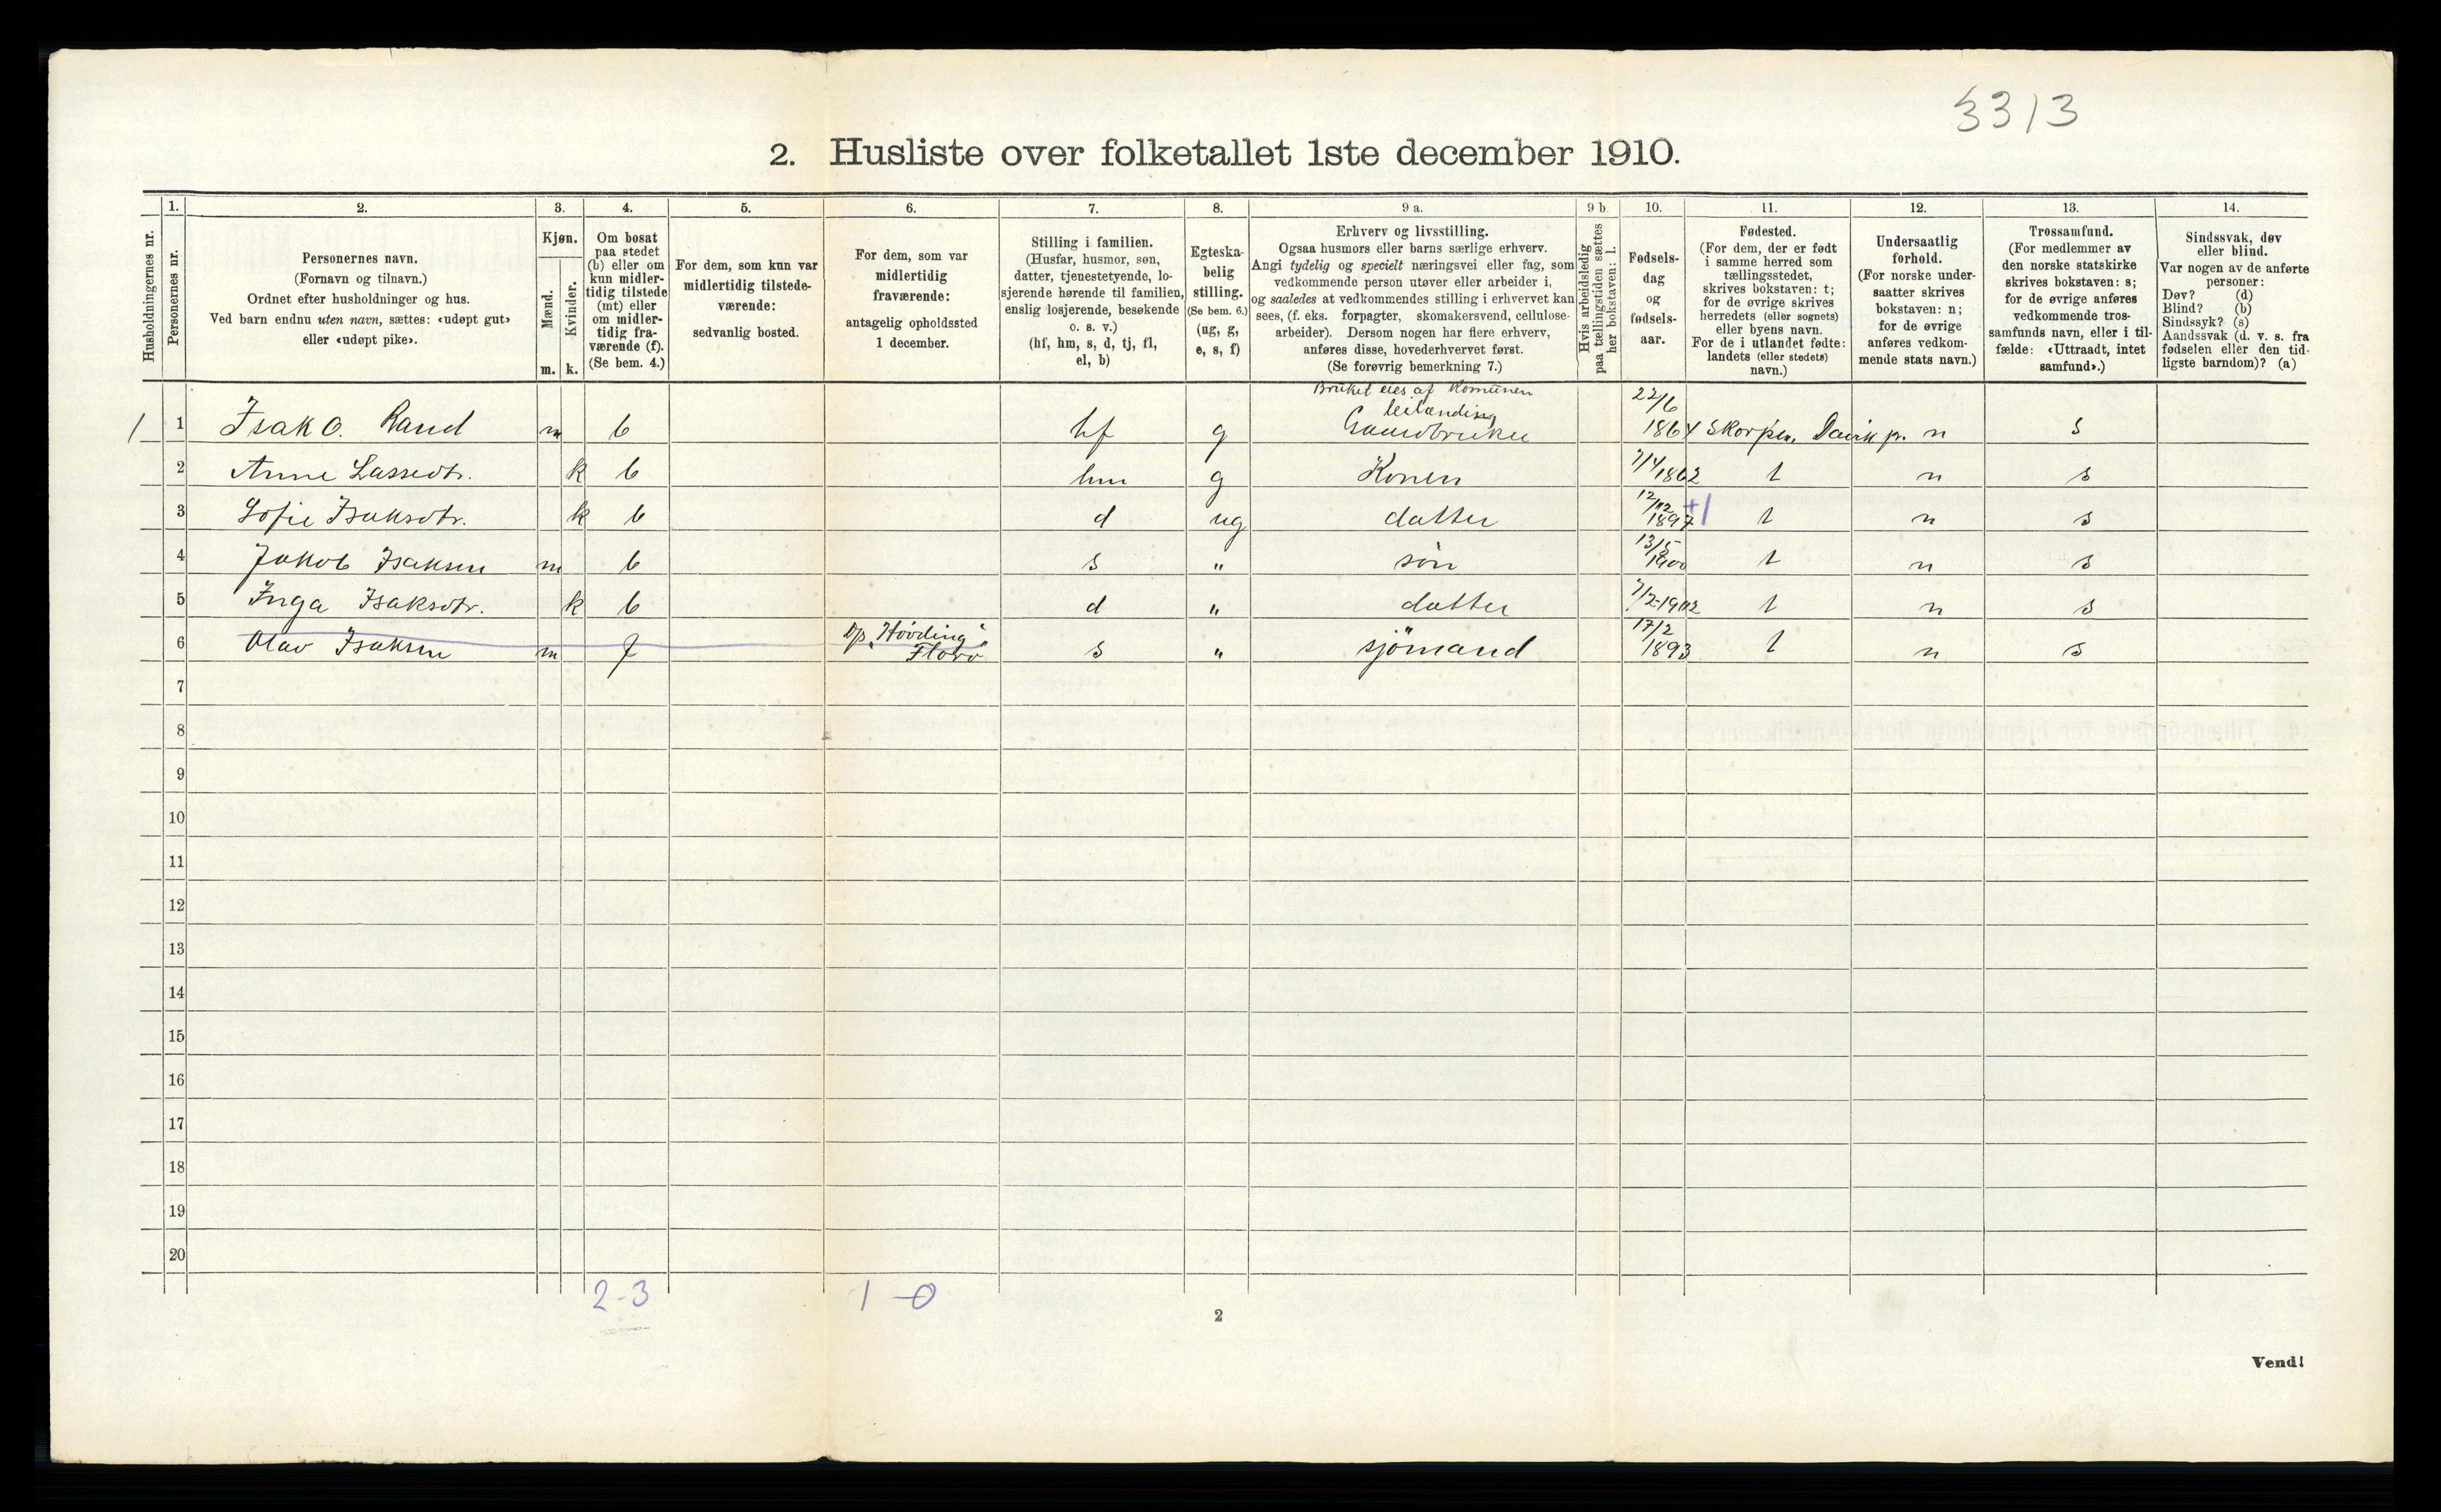 3313
2. Husliste over folketallet 1ste december 1910.
1. 2. 3. 4. 5. 6. 7. 8. 9 a. 9 b 10. 11. 12. 13. 14.
Husholdningernes nr.
Personernes nr.
Personernes navn.
(Fornavn og tilnavn.)
Ordnet efter husholdninger og hus.
Ved barn endnu uten navn, sættes: «udøpt gut»
eller «udøpt pike».
Kjøn.
Mænd.
Kvinder.
m. k.
Om bosat
paa stedet
(b) eller om
kun midler-
tidig tilstede
(mt) eller
om midler-
tidig fra-
værende (f).
(Se bem. 4.)
For dem, som kun var
midlertidig tilstede-
værende:
sedvanlig bosted.
For dem, som var
midlertidig
fraværende:
antagelig opholdssted
1 december.
Stilling i familien.
(Husfar, husmor, søn,
datter, tjenestetyende, lo-
sjerende hørende til familien,
enslig losjerende, besøkende
o. s. v.)
(hf, hm, s, d, tj, fl,
el, b)
Egteska-
belig
stilling.
(Se bem. 6.)
(ug, g,
e, s, f)
Erhverv og livsstilling.
Ogsaa husmors eller barns særlige erhverv.
Angi tydelig og specielt næringsvei eller fag, som
vedkommende person utøver eller arbeider i,
og saaledes at vedkommendes stilling i erhvervet kan
sees, (f. eks. forpagter, skomakersvend, cellulose-
arbeider). Dersom nogen har flere erhverv,
anføres disse, hovederhvervet først.
(Se forøvrig bemerkning 7.)
Hvis arbeidsledig
paa tællingstiden sættes
her bokstaven: l.
Fødsels-
dag
og
fødsels-
aar.
Fødested.
(For dem, der er født
i samme herred som
tællingsstedet,
skrives bokstaven: t;
for de øvrige skrives
herredets (eller sognets)
eller byens navn.
For de i utlandet fødte:
landets (eller stedets)
navn.)
Undersaatlig
forhold.
(For norske under-
saatter skrives
bokstaven: n;
for de øvrige
anføres vedkom-
mende stats navn.)
Trossamfund.
(For medlemmer av
den norske statskirke
skrives bokstaven: s;
for de øvrige anføres
vedkommende tros-
samfunds navn, eller i til-
fælde: «Uttraadt, intet
samfund».)
Sindssvak, døv
eller blind.
Var nogen av de anførte
personer:
Døv? (d)
Blind? (b)
Sindssyk? (s)
Aandssvak (d. v. s. fra
fødselen eller den tid-
ligste barndom)? (a)
Bruket eies af Komunen
leilænding
1 1 Isak O. Rand m b hf g Gaardbruker 22/6 1864 Skorpen, Davik p. n s
2 Anne Lassedtr. k b hm g Konen 7/4 1862 t n s
3 Sofie Isaksdtr. k b d ug datter 12/12 1897 +1 t n s
4 Jakob Isaksen m b s " søn 13/5 1900 t n s
5 Inga Isaksdtr. k b d " datter 7/2-1902 t n s
6 Olav Isaksen m f D/s. "Høvding". Florø s " sjömand 17/2 1893 t n s
7
8
9
10
11
12
13
14
15
16
17
18
19
20
2-3 1-0
2
Vend!